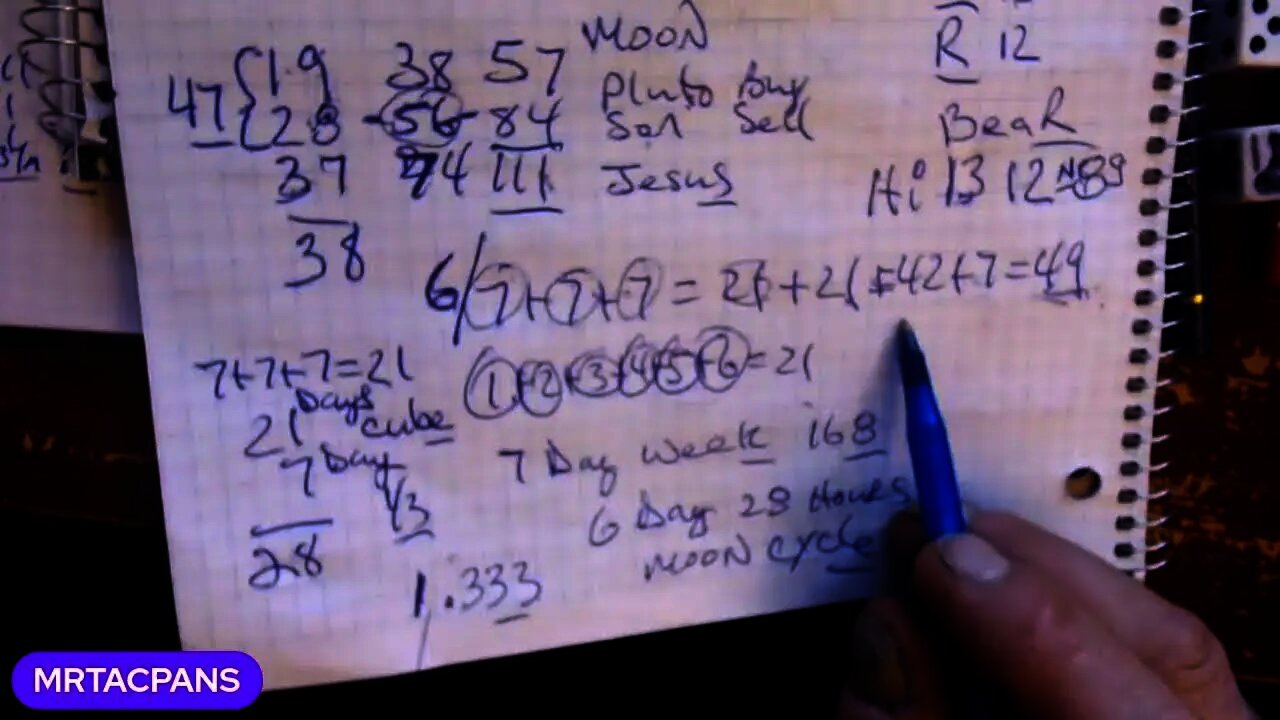 MOON
R 12
19 38 57
47 { 28 56 84
Pluto Buy
Son Sell
BeaR
37 74 111 Jesus
Hi 13 12 89
38
6/7+7+7 = 21+21=42+7=49
7+7+7=21
Days
1+2+3+4+5+6=21
21 cube
7 Day
7 Day week 168
1/3
28
6 Day 28 Hours
MOON cycle
1.333
MRTACPANS